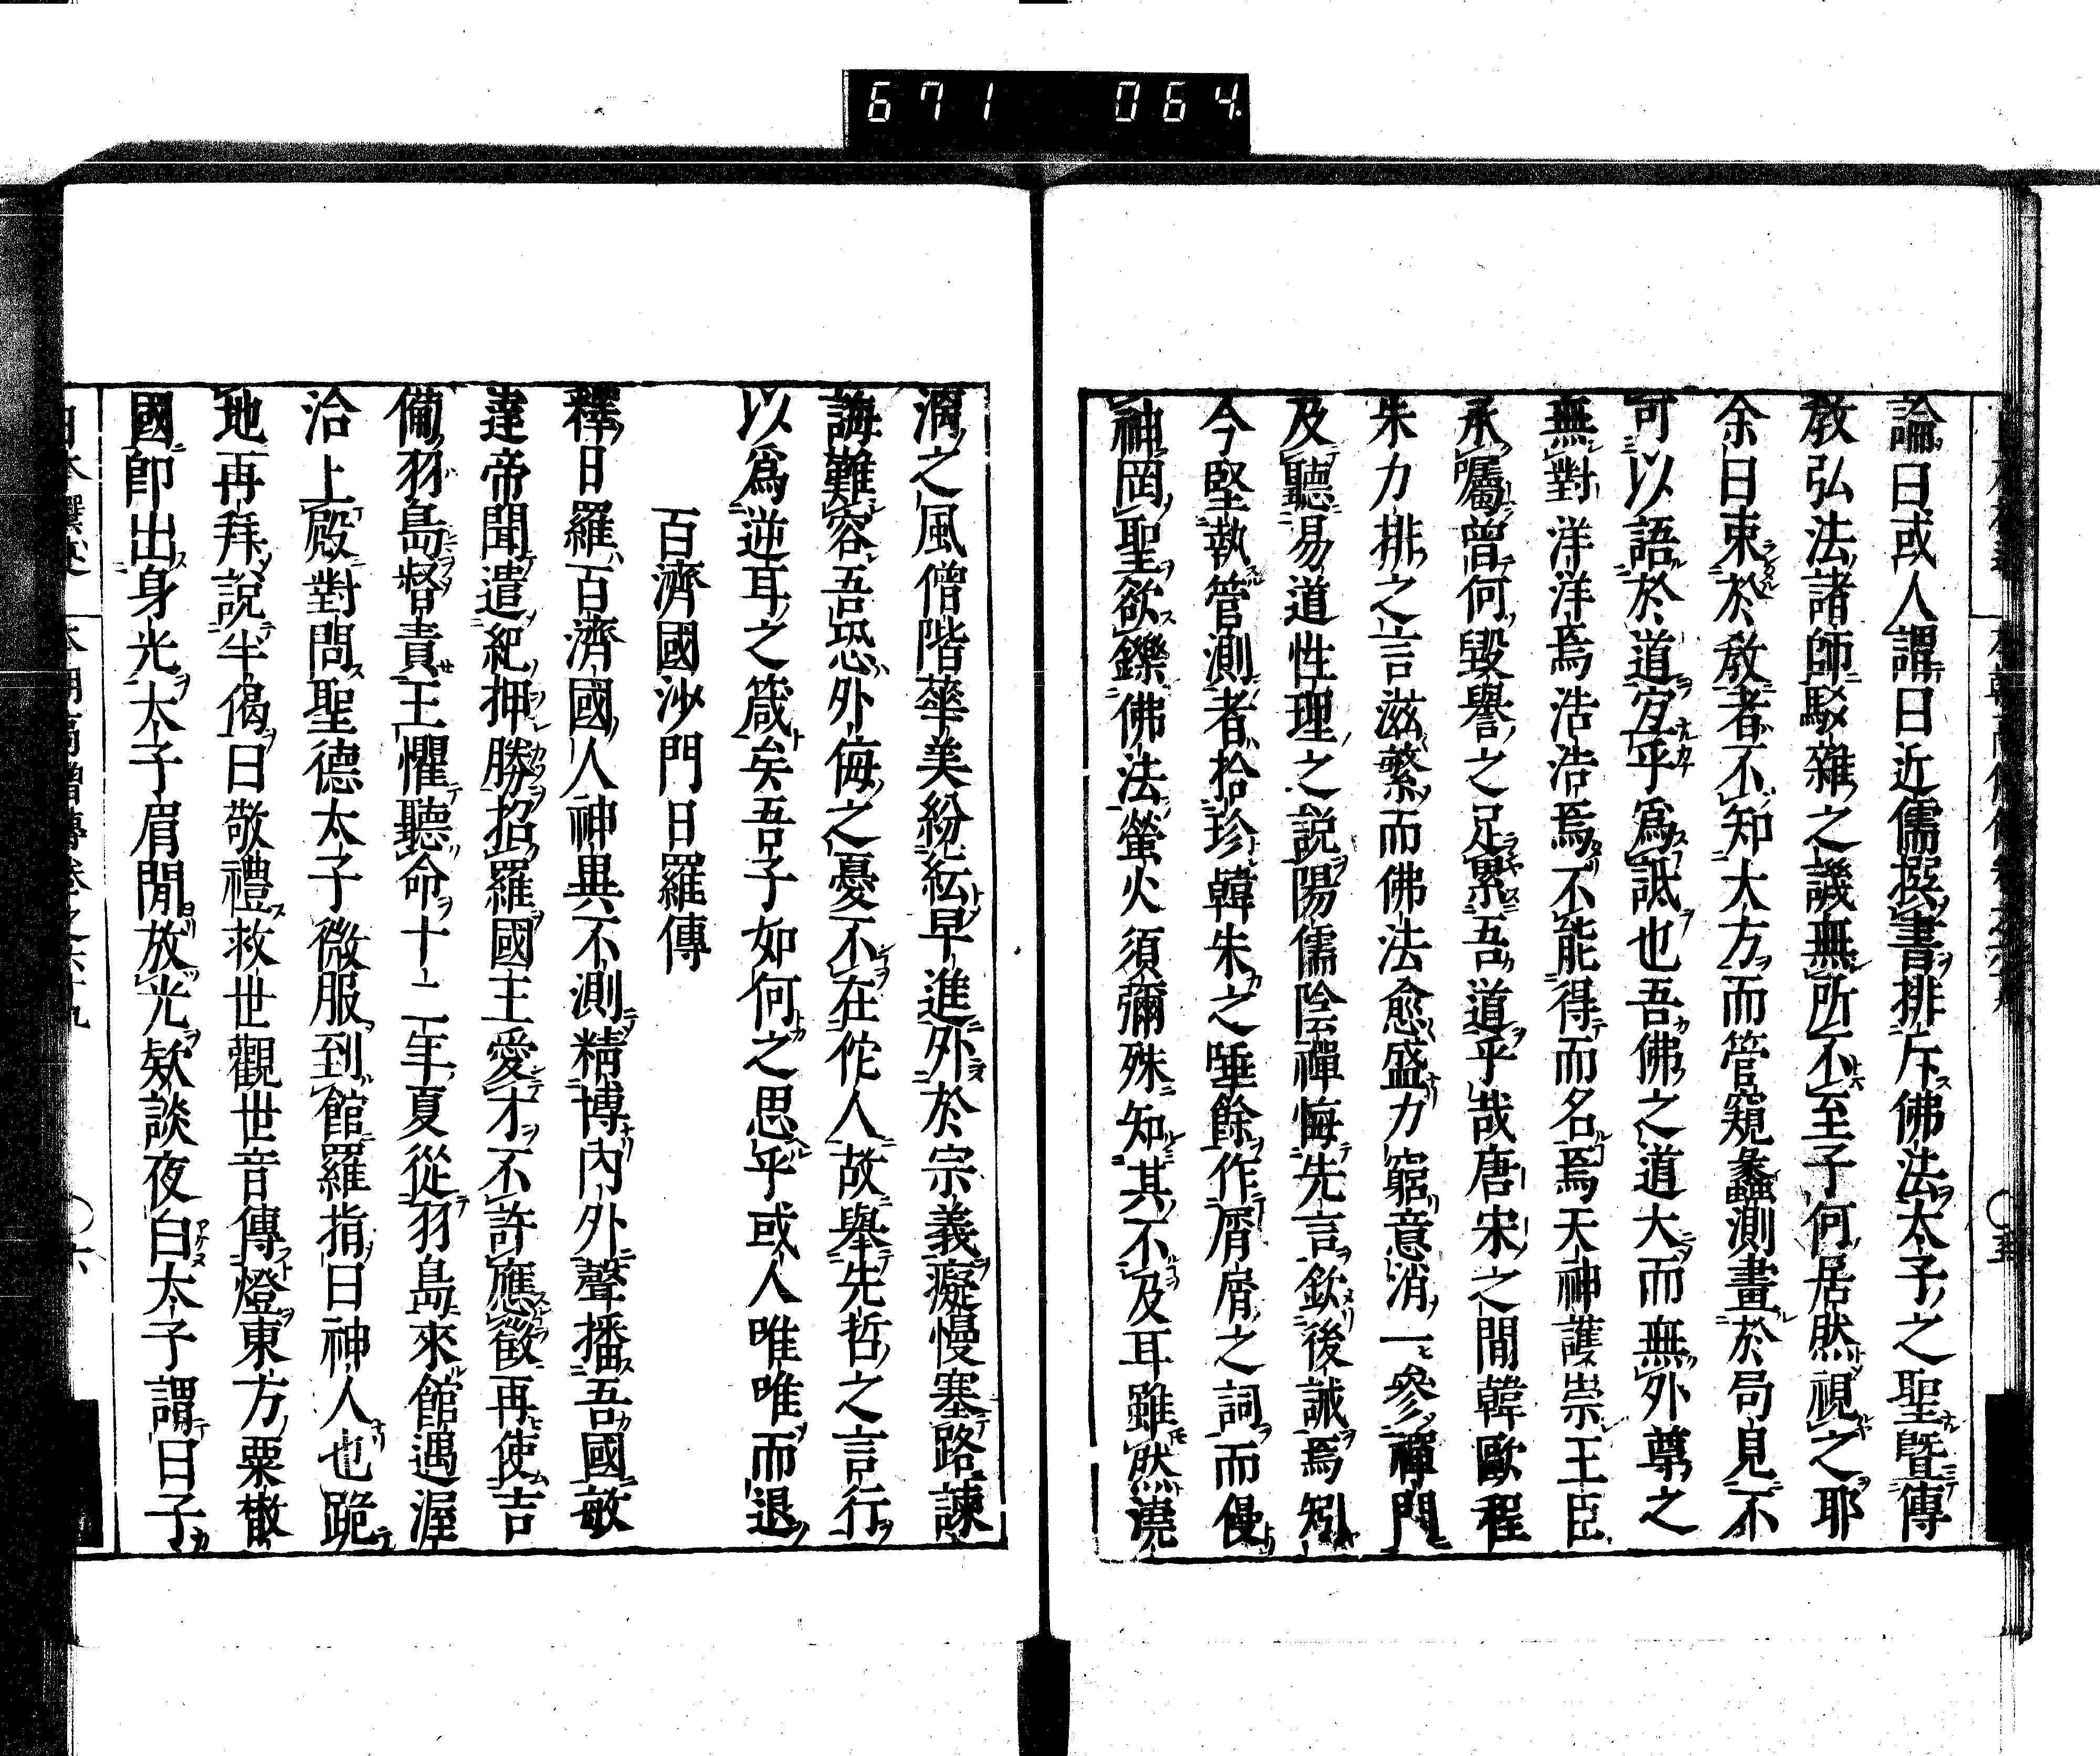 671 064
論曰或人謂曰近儒撰書排斥佛法太子之聖曁傳
敎弘法諸師駁雜之譏無所不至子何居然視之耶
余曰束於敎者不知大方而管窺蠡測畫於局見不
可以語於道宜乎爲詆也吾佛之道大而無外尊之
無對洋洋焉浩浩焉不能得而名焉天神護崇王臣
承囑曾何毀譽之足累吾道乎哉唐宋之間韓歐程
朱力排之言滋繁而佛法愈盛力窮意消一參禪門
及聽易道性理之說陽儒陰禪悔先言欽後誡焉矧
今堅執管測者拾珍韓朱之唾餘作屑屑之詞而侵
神罔聖欲鑠佛法螢火須彌殊知其不及耳雖然澆
漓之風僧階華美紛紜早進外於宗義癡慢塞路諫
誨難容吾恐外侮之憂不在佗人故擧先哲之言行
以爲逆耳之箴矣吾子如何之思乎或人唯唯而退
百濟國沙門日羅傳
釋日羅百濟國人神異不測精博內外聲播吾國敏
達帝聞遣紀押勝招羅國王愛才不許應徵再使吉
備羽島督責王懼聽命十二年夏從羽島來館遇渥
洽上殿對問聖德太子微服到館羅指曰神人也跪
地再拜說半偈曰敬禮救世觀世音傳燈東方粟散
國即出身光太子眉間放光欵談夜白太子謂曰子
日本撰述 本朝高僧傳卷之六十九 〇六